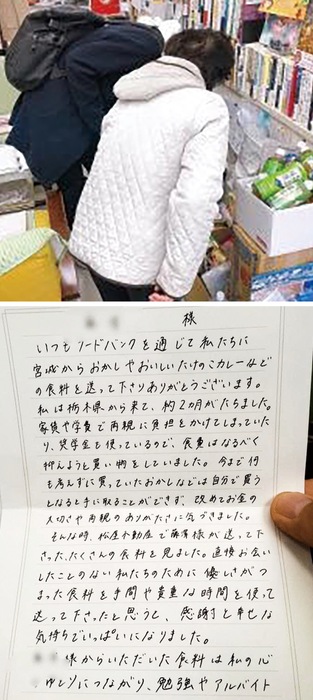 様
いつもフードバンクを通じて私たちに
宮城からおかしやおいしいたけのこカレーなど
の食料を送って下さりありがとうございます。
私は栃木県から来て、約2カ月がたちました。
家賃や学費で両親に負担をかけてしまってい
たり、奨学金も使っているので、食費はなるべく
抑えようと買い物をしていました。今まで何
も考えずに買っていたおかしなどは自分で買う
となると手に取ることができず、改めてお金の
大切さや両親のありがたさに気づきました。
そんな時、松屋不動産で藤澤様が送って下
さった、たくさんの食料を見ました。直接お会い
したことのない私たちのために優しさがつ
まった食料を手間や貴重な時間を使って
送って下さったと思うと、感謝と幸せな
気持ちでいっぱいになりました。
様からいただいた食料は私の心
ゆとりにつながり、勉強やアルバイト